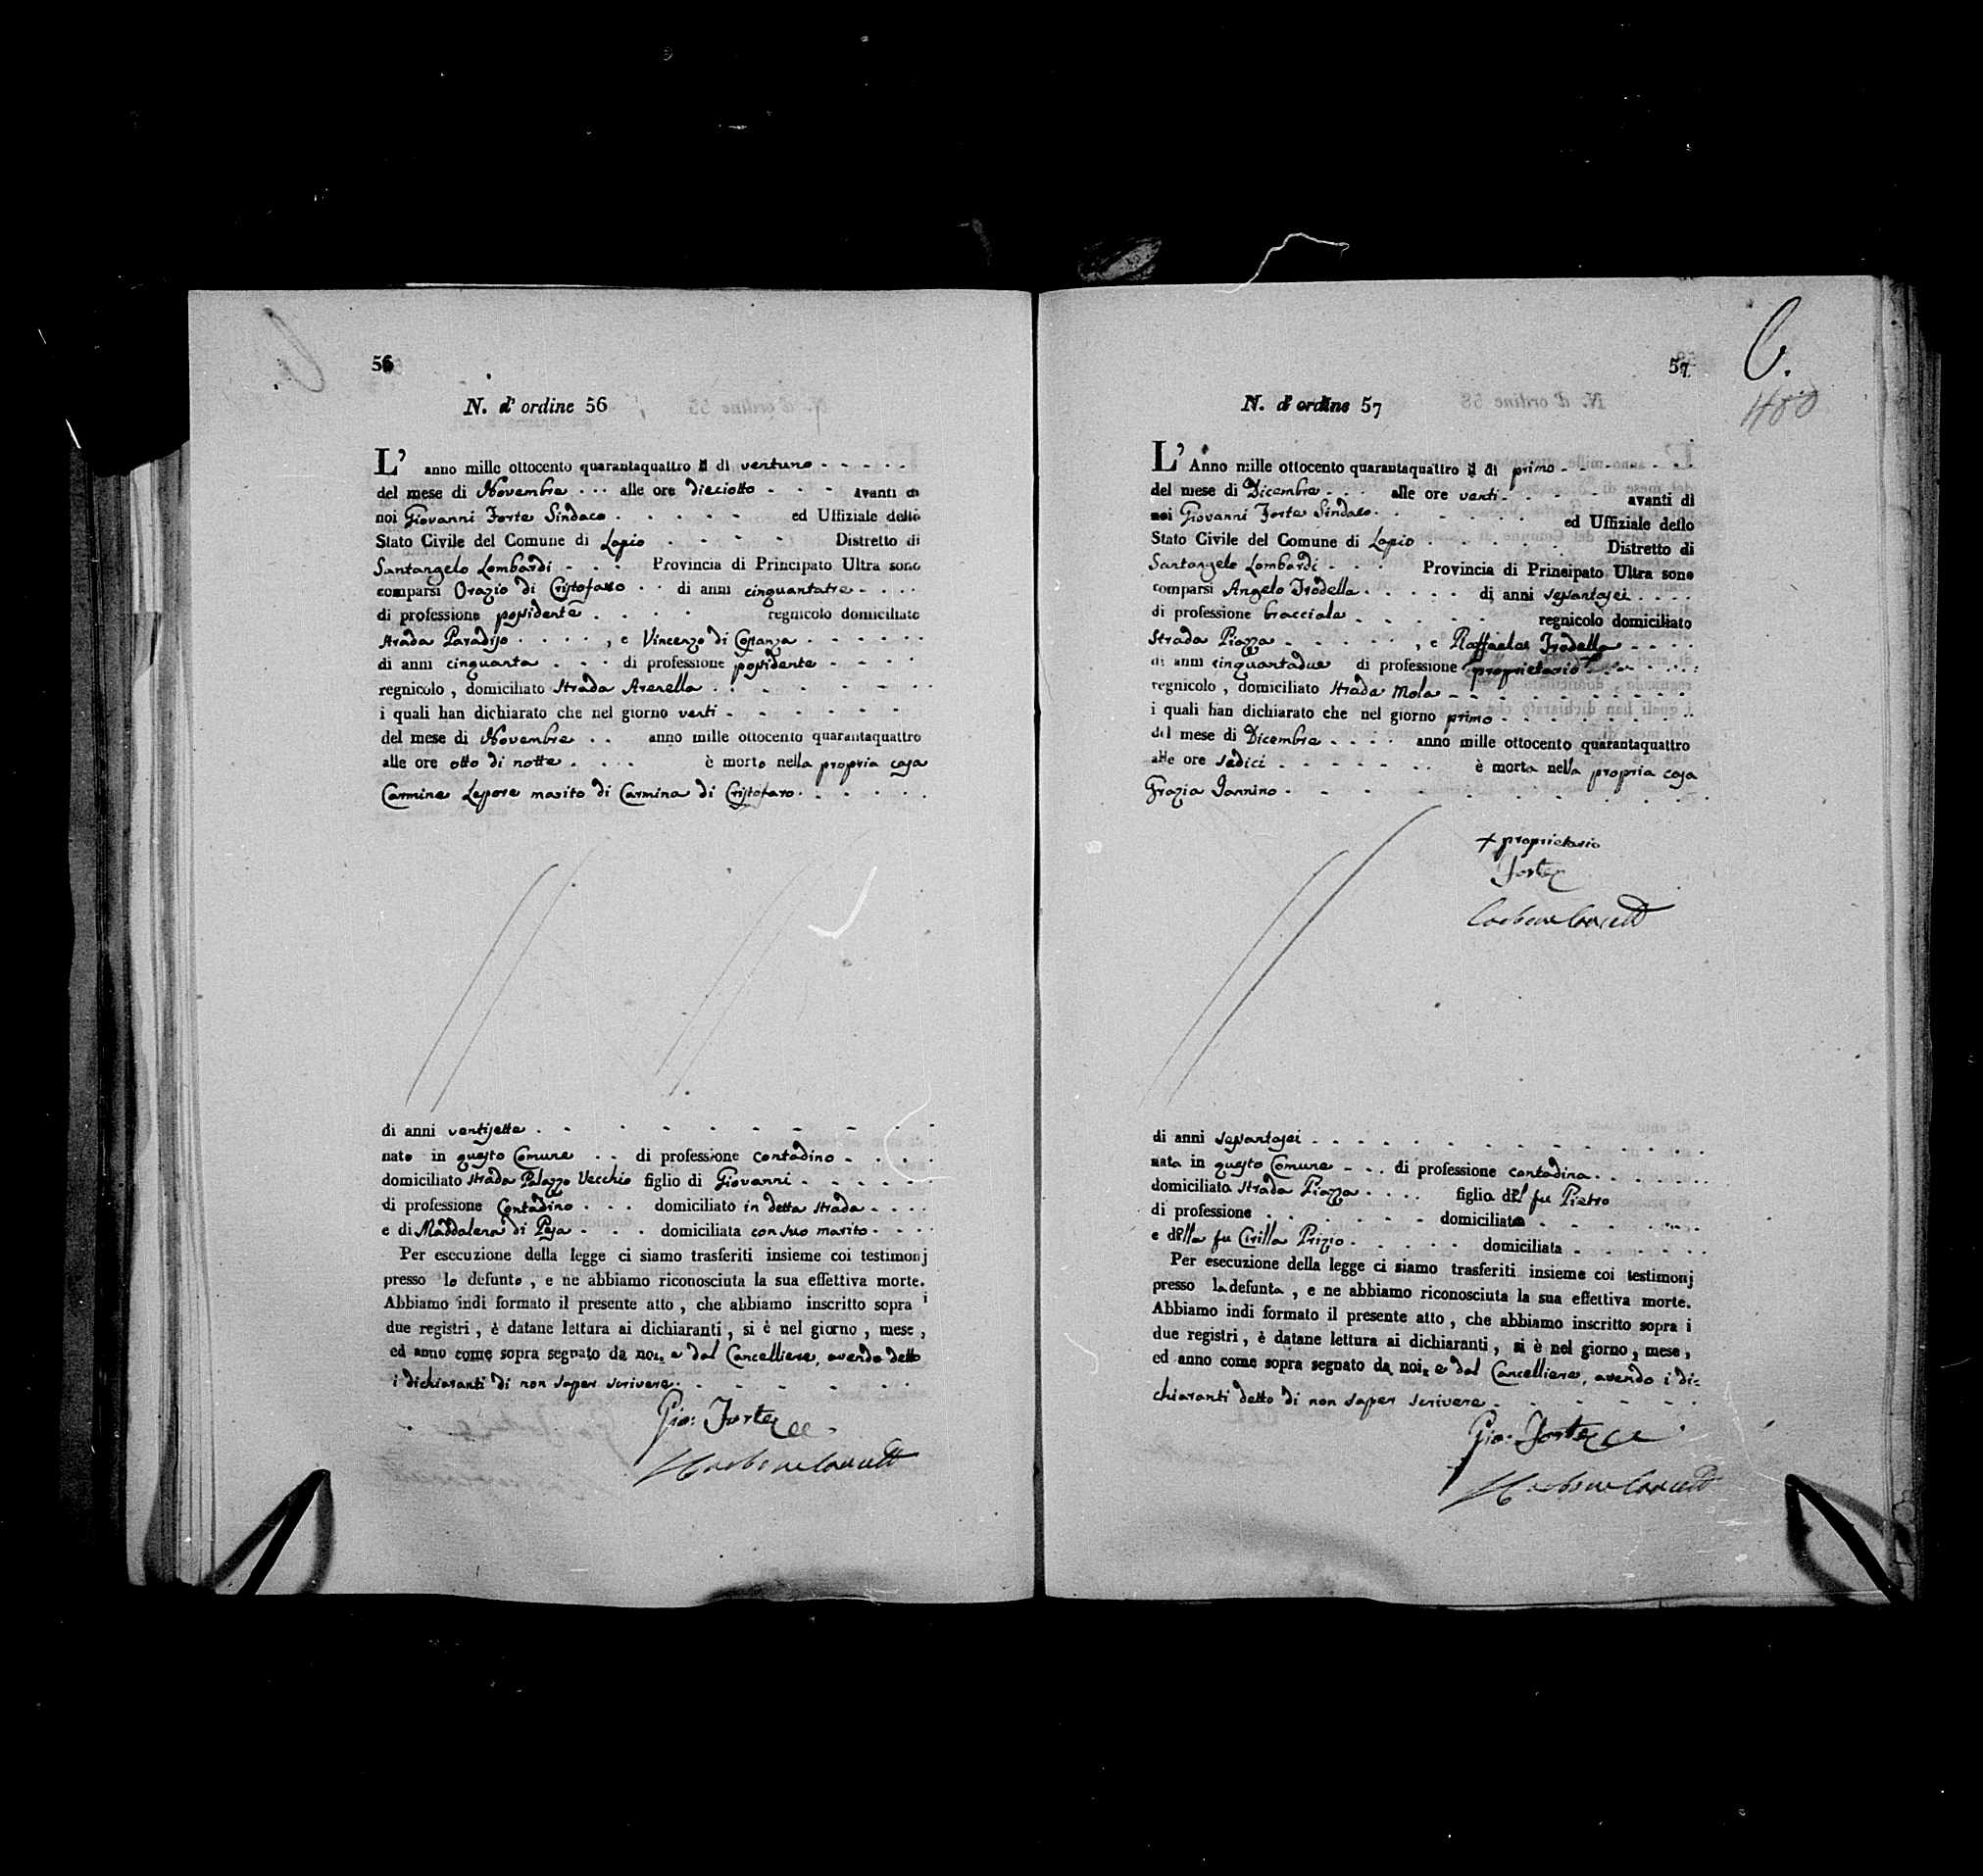 56
N. d' ordine 56
L' anno mille ottocento quarantaquattro il di ventuno
del mese di Novembre alle ore dieciotto avanti di
noi Giovanni Forte Sindaco ed Uffiziale dello
Stato Civile del Comune di Lapio Distretto di
Santangelo Lombardi Provincia di Principato Ultra sono
comparsi Orazio di Cristofaro di anni cinquantatre
di professione possidente regnicolo domiciliato
strada Paradiso , e Vincenzo di Costanza
di anni cinquanta di professione possidente
regnicolo , domiciliato strada Arenella
i quali han dichiarato che nel giorno venti
del mese di Novembre anno mille ottocento quarantaquattro
alle ore otto di notte è morto nella propria casa
Carmine Lepore marito di Carmina di Cristofaro
di anni ventisette
nato in questo Comune di professione contadino
domiciliato strada Palazzo Vecchio figlio di Giovanni
di professione Contadino domiciliato in detta strada
e di Maddalena di Pesa domiciliata con suo marito
Per esecuzione della legge ci siamo trasferiti insieme coi testimonj
presso lo defunto , e ne abbiamo riconosciuta la sua effettiva morte.
Abbiamo indi formato il presente atto , che abbiamo inscritto sopra i
due registri , è datane lettura ai dichiaranti , si è nel giorno , mese ,
ed anno come sopra segnato da noi, e dal Cancelliere, avendo detto
i dichiaranti di non saper scrivere.
Gio: Forte
57
N. d' ordine 57
L' Anno mille ottocento quarantaquattro il di primo
del mese di Dicembre alle ore venti avanti di
noi Giovanni Forte Sindaco ed Uffiziale dello
Stato Civile del Comune di Lapio Distretto di
Santangelo Lombardi Provincia di Principato Ultra sono
comparsi Angelo Trodella di anni sessantasei
di professione bracciale regnicolo domiciliato
strada Piazza , e Raffaele Trodella
di anni cinquantadue di professione proprietario
regnicolo , domiciliato strada Mola
i quali han dichiarato che nel giorno primo
del mese di Dicembre anno mille ottocento quarantaquattro
alle ore sedici è morta nella propria casa
Grazia Iannino
+ proprietario
Forte
di anni sessantasei
nata in questo Comune di professione contadina
domiciliata strada Piazza figlia del fu Pietro
di professione domiciliato
e della fu Cirilla Prizio domiciliata
Per esecuzione della legge ci siamo trasferiti insieme coi testimonj
presso la defunta , e ne abbiamo riconosciuta la sua effettiva morte.
Abbiamo indi formato il presente atto , che abbiamo inscritto sopra i
due registri , è datane lettura ai dichiaranti , si è nel giorno , mese ,
ed anno come sopra segnato da noi, e dal Cancelliere, avendo i di=
chiaranti detto di non saper scrivere
Gio: Forte